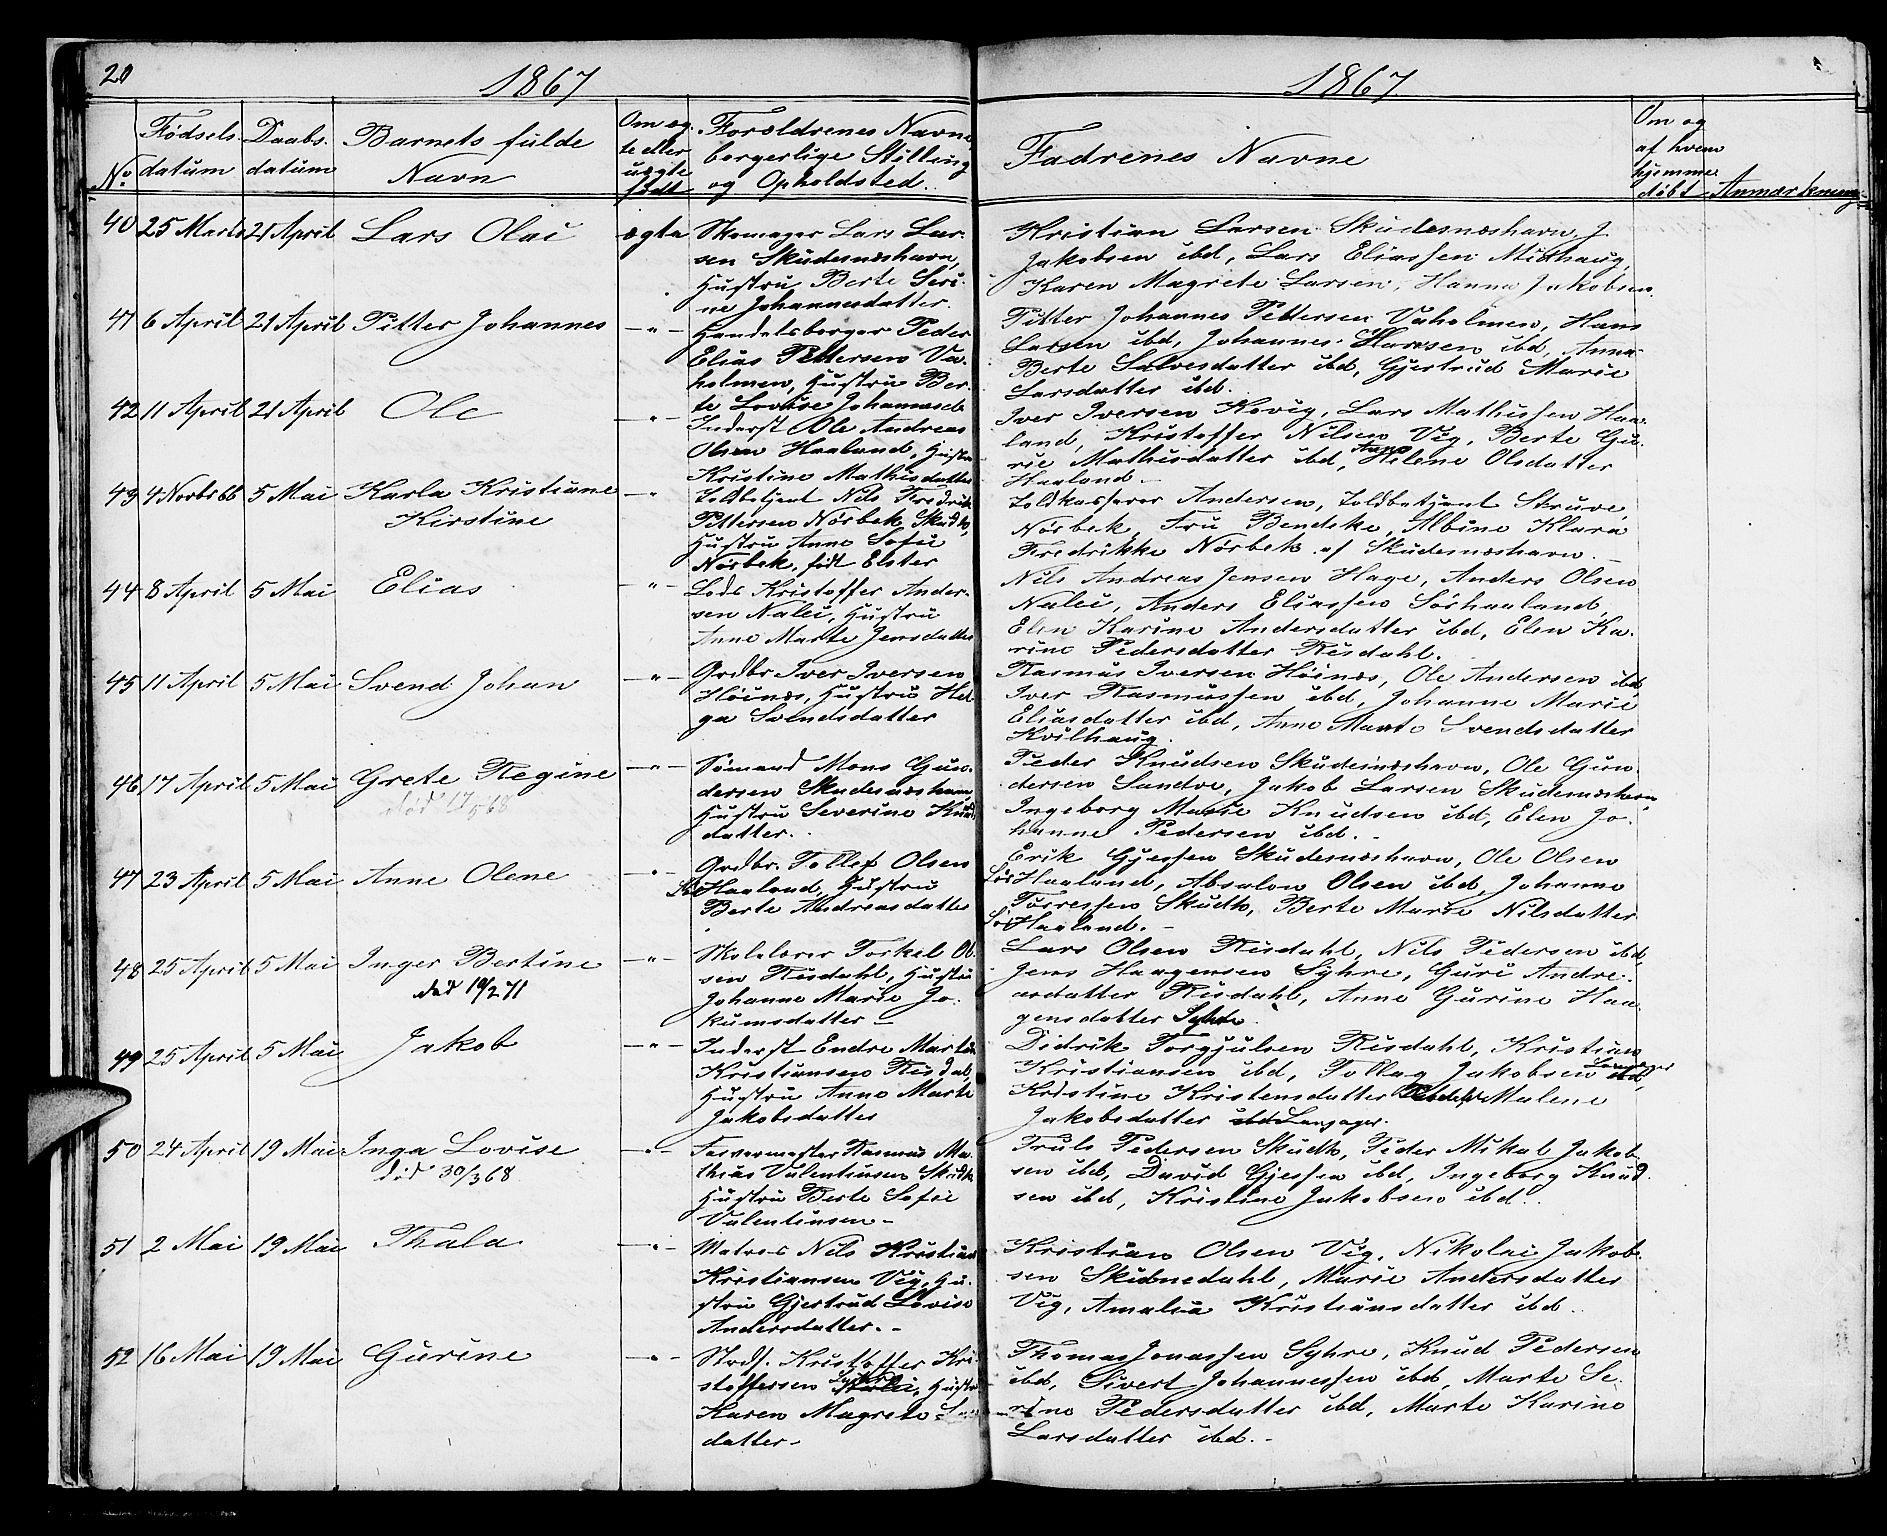 20
1867
1867
No
Fødsels datum
Daabs datum
Barnets fulde Navn
Om ægte eller uægte født
Forældrenes Navne borgerlige Stilling og Opholdsted.
Fadrenes Navne
Om og af hvem hjemme døbt
Anmærkning
40 25 Marts 21 April Lars Olai ægte
Skomager Lars Lar-
sen Skudesnæshavn,
Hustru Berte Seri-
ne Johannesdatter.
Kristian Larsen Skudesnæshavn, J
Jakobsen ibd, Lars Eliassen Midhaug,
Karen Magrete Larsen, Hanna Jakobsen
41 6 April 21 April Pitter Johannes —"—
Handelsborger Peder
Elias Pettersen Va-
holmen, Hustru Ber-
te Lovise Johannesd
Pitter Johannes Pettersen Vaholmen, Hans
Larsen ibd, Johannes Hansen ibd, Anna
Berte Salvesdatter ibd, Gjertrud Marie
Larsdatter ibd.
42 11 April 21 April Ole —"—
Inderst Ole Andreas
Olsen Haaland, Hustru
Kristine Mathisdatter
Iver Iversen Kovig, Lars Mathissen Haa-
land, Kristoffer Nilsen Vig, Berte Gu-
rie Mathisdatter ibd, Helene Olsdatter
Haaland.—
43 4 Novbr 66 5 Mai Karla Kristiane —"—
Kirstine
Toldbetjent Nils Fredrik
Pettersen Nørbek Skudh,
Hustru Anne Sofie
Nørbek, født Elster
Toldkasserer Andersen, Toldbetjent Struve,
Nørbek, Fru Bendeke, Albine Klara
Fredrikke Nørbek af Skudesnæshavn.—
44 8 April 5 Mai Elias —"—
Lods Kristoffer Ander-
sen Nalei, Hustru
Anne Marte Jensdatter
Nils Andreas Jensen Hage, Anders Olsen
Nalei, Anders Eliassen Sørhaaland,
Elen Karine Andersdatter ibd, Elen Ka-
rine Pedersdatter Risdahl.
45 11 April 5 Mai Svend Johan —"—
Grdbr Iver Iversen
Høinæs, Hustru Hel-
ga Svendsdatter
Rasmus Iversen Høinæs, Ole Andersen ibd
Iver Rasmussen ibd, Johanne Marie
Eliasdatter ibd, Anne Marte Svendsdatter
Kvilhaug.
46 17 April 5 Mai Grete Regine —"—
død 17/5 68
Sømand Mons Gun-
dersen Skudesnæshavn,
Hustru Severine Knuds
datter.
Peder Knudsen Skudesnæshavn, Ole Gun-
dersen Sandve, Jakob Larsen Skudesnæshavn,
Ingeborg Marie Knudsen ibd, Elen Jo-
hanne Pedersen ibd.—
47 23 April 5 Mai Anne Olene —"—
Grdbr. Tollef Olsen
Haaland, Hustru
Berte Andreasdatter
Erik Gjessen Skudesnæshavn, Ole Olsen
Sør Haaland, Absalon Olsen ibd, Johanne
Torressen Skudh, Berte Marie Nilsdatter
Sør Haaland.—
48 25 April 5 Mai Inger Bertine —"—
død 19/2 71
Skolelærer Torkel Ol-
sen Risdahl, Hustru
Johanne Marie Jo-
kumsdatter—
Lars Olsen Risdahl, Nils Pedersen ibd,
Jens Haagensen Syhre, Guri Andre-
asdatter Risdahl, Anne Gurine Haa-
gensdatter Syhre.
49 25 April 5 Mai Jakob —"—
Inderst Endre Martin
Kristiansen Risdal,
Hustru Anne Marte
Jakobsdatter
Didrik Torgjulsen Risdahl, Kristian
Kristiansen ibd, Tollag Jakobsen Langager
Kristine Kristensdatter Malene
Jakobsdatter ibd Langager.
50 24 April 19 Mai Inga Lovise —"—
død 30/3 68
Farvermester Rasmus Ma-
thias Valentinsen Skudh
Hustru Berte Sofie
Valentinsen—
Truls Pedersen Skudh, Peder Mikal Jakob-
sen ibd, David Gjessen ibd, Ingeborg Knud-
sen ibd, Kristine Jakobsen ibd.
51 2 Mai 19 Mai Thala —"—
Matros Nils Kristian
Kristiansen Vig, Hu-
stru Gjertrud Lovise
Andersdatter.—
Kristian Olsen Vig, Nikolai Jakob-
sen Skudnedahl, Marie Andersdatter
Vig, Amalia Kristiansdatter ibd.
52 16 Mai 19 Mai Gurine —"—
Strds. Kristoffer Kri-
stoffersen Hustru
Karen Magrete
datter—
Thomas Jonassen Syhre, Knud Pedersen
ibd, Sivert Johannessen ibd, Marte Se-
rine Pedersdatter ibd, Marte Karine
Larsdatter ibd.—